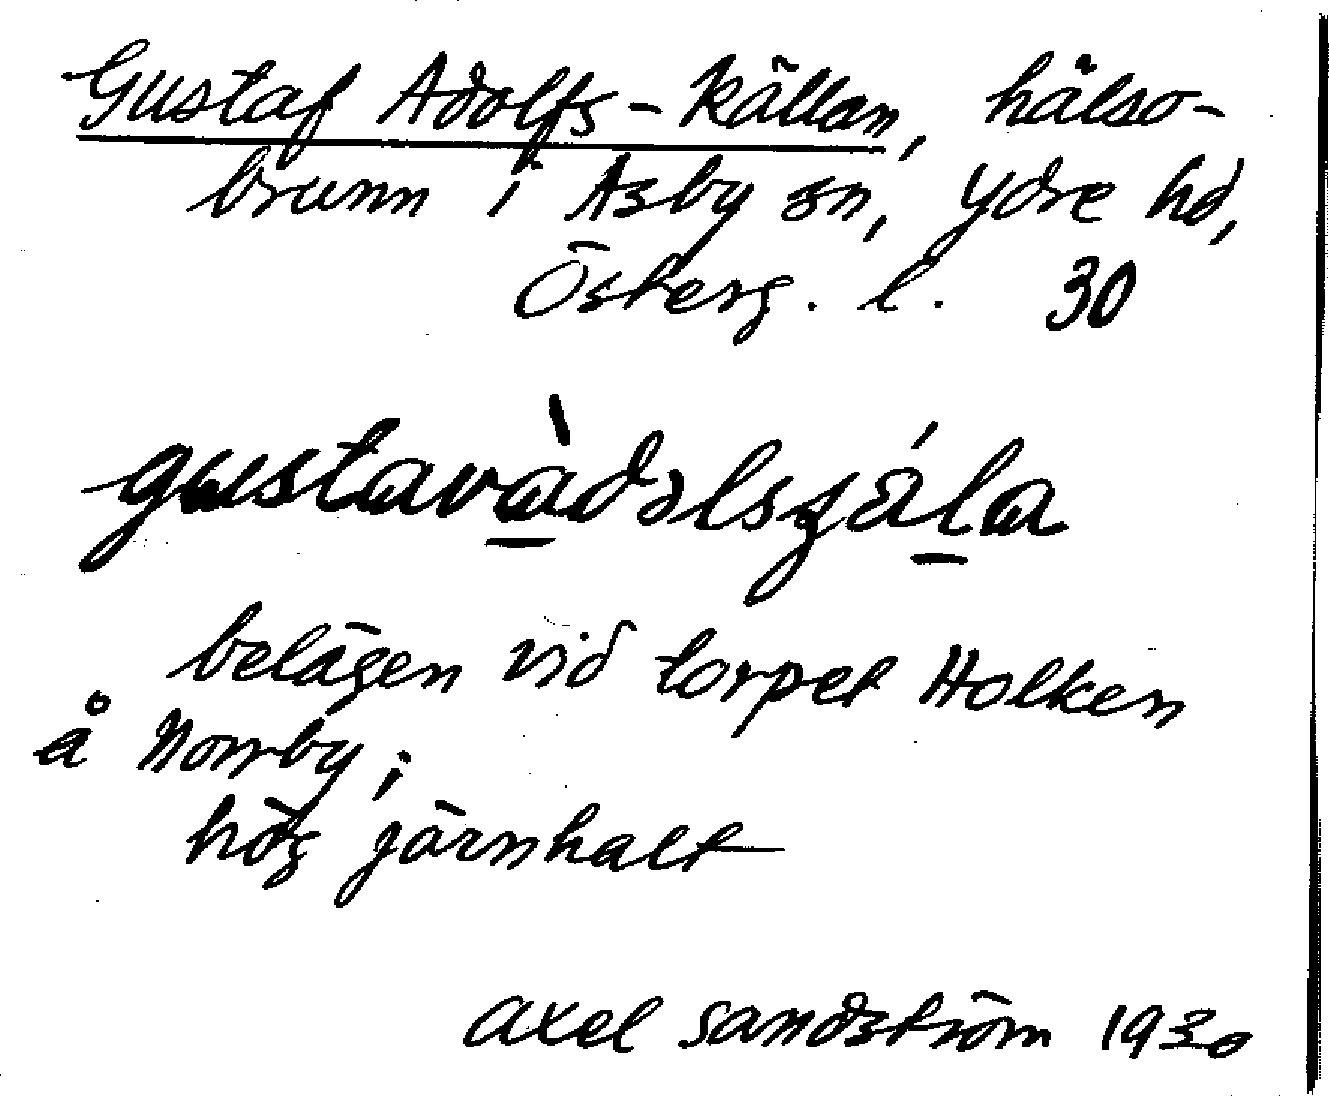 Gustaf Adolfs-källan, hälso-
brunn i Asby sn, Ydre hd,
Österg. l. 30
belägen vid torpet Holken
å Norrby;
hög järnhalt
Axel Sandström 1930